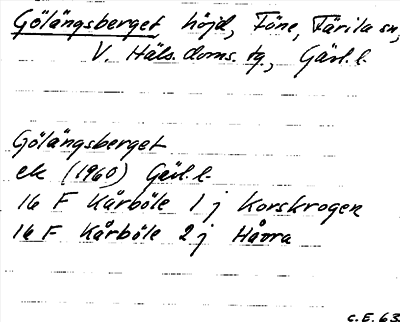 Gölängsberget höjd, Föne, Färila sn,
V. Häls. doms. tg., Gävl. l.
Gölängsberget
ek (1960) Gävl. l.
16 F Kårböle 1 j Korskrogen
16 F Kårböle 2 j Håvra
C.E. 63